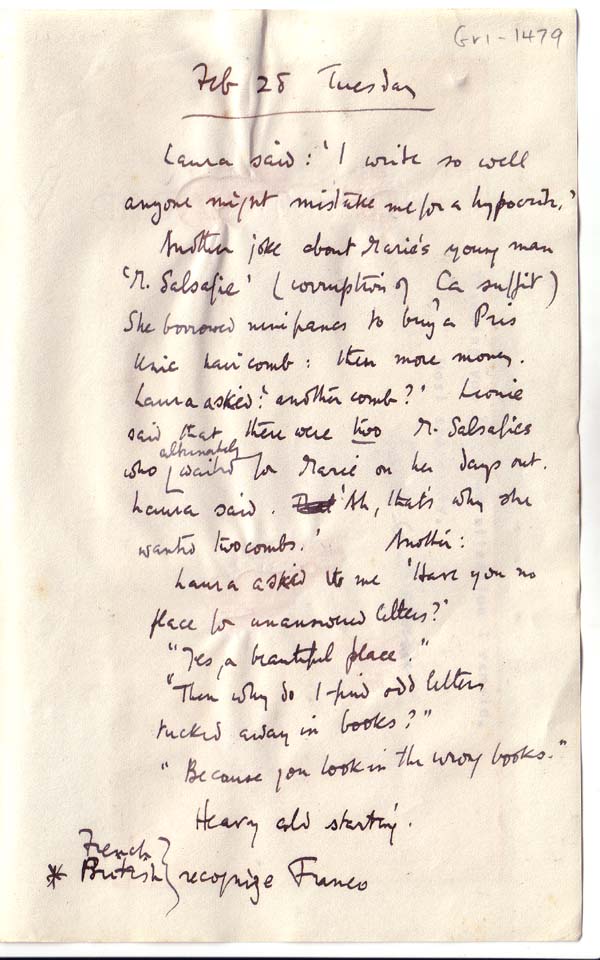 Gr1-1479
Feb 28 Tuesday
Laura said: 'I write so well
anyone might mistake me for a hypocrite.'
Another joke about Marie's young man
'M. Salsafie' (corruption of Ca suffit)
She borrowed nine francs to buy a Pris
Unic hair comb: then more money.
Laura asked: 'another comb?' Leonie
said that there were two M. Salsafies
alternately
who waited for Marie on her days out.
Laura said. 'Ah, that's why she
wanted two combs.' Another:
Laura asked to me 'Have you no
place for unanswered letters?'
"Yes, a beautiful place."
"Then why do I find odd letters
tucked away in books?"
"Because you look in the wrong books."
Heavy cold starting.
French
* British } recognize Franco